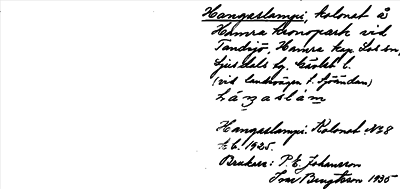 Hangaslampi, kolonat å
Hamra kronopark vid
Tandsjö, Hamra kap. Los sn,
Ljusdals tg. Gävleb. l.
(vid landsvägen t. Fjärden)
háŋaslám̄
Hangaslampi. Kolonat № 8
t. b. 1925.
Brukare: P. E. Johansson
Ivar Bengtsson 1935